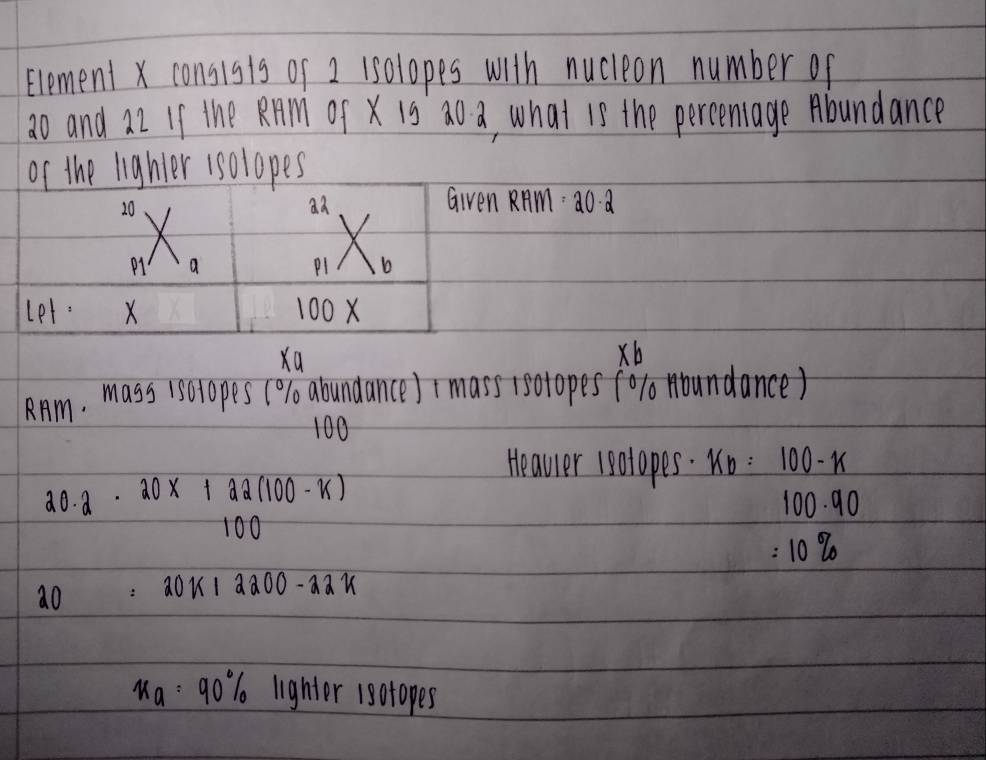 Element X consists of 2 isotopes with nucleon number of
20 and 22 if the RAM of X is 20.2, what is the percentage Abundance
of the lighter isotopes
20 X P1 a
22 X P1 b
Given RAM = 20.2
Let : x
100 x
Xa
Xb
RAM = mass isotopes (% abundance) + mass isotopes (% Abundance)
100
20.2 = 20x + 22(100 - x)
100
20 = 20x + 2200 - 22x
xa = 90% lighter isotopes
Heavier isotopes = xb = 100 - x
100 - 90
= 10%